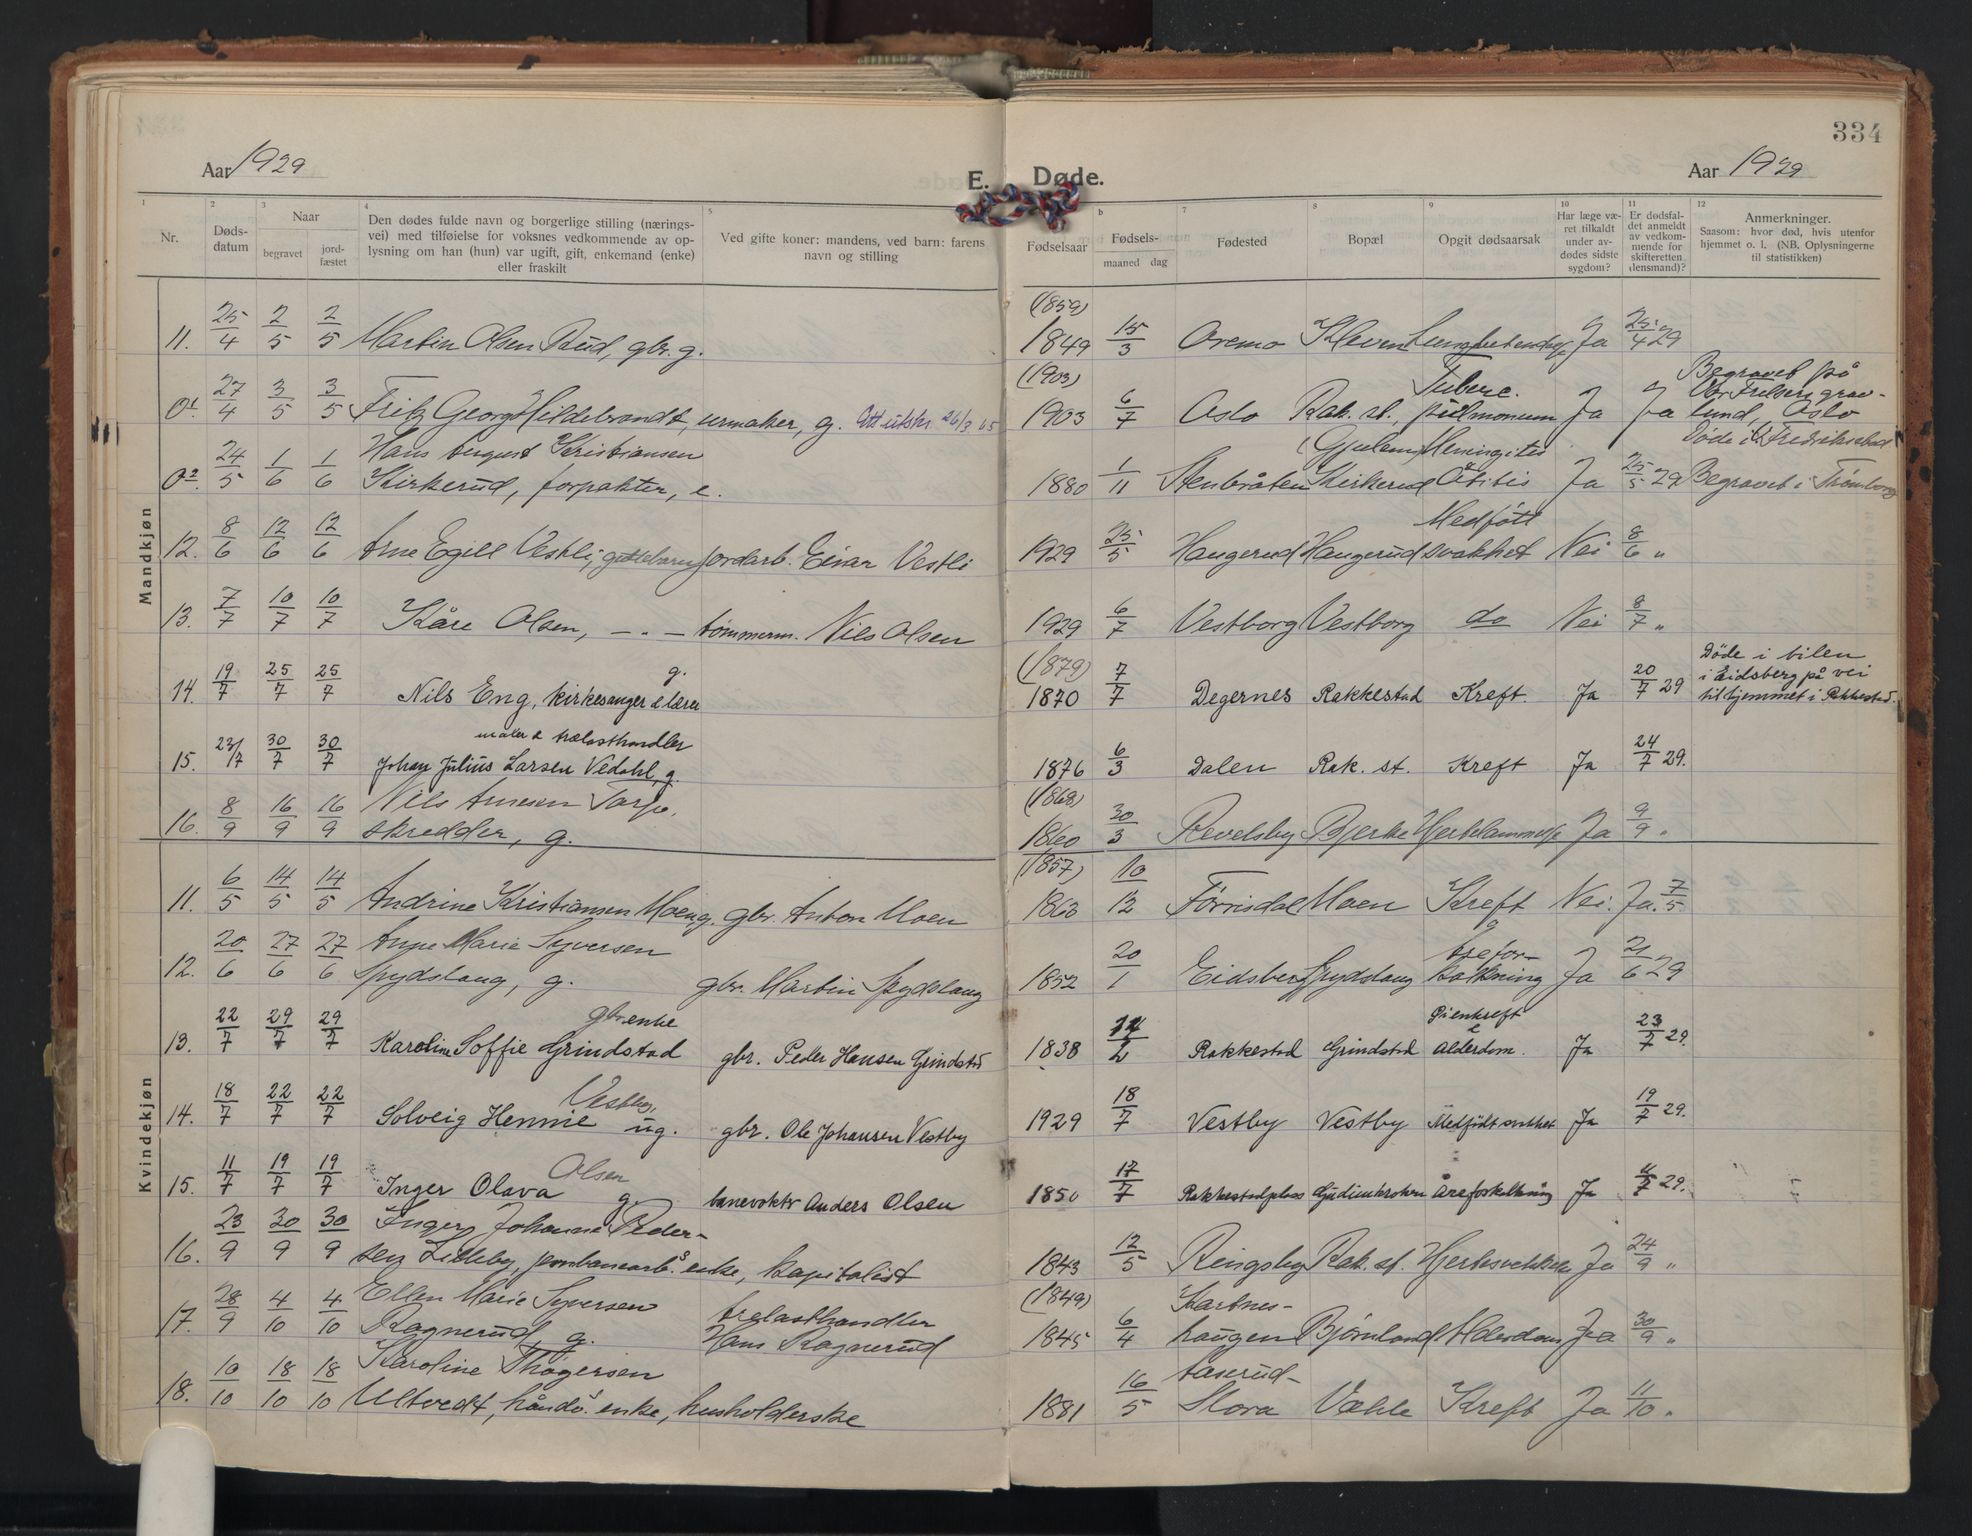 334
Aar 1929
E.
Døde.
Aar 1929
1 2 3 4 5 6 7 8 9 10 11 12
Nr.
Døds-
datum
Naar
begravet
jord-
fæstet
Den dødes fulde navn og borgerlige stilling (nærings-
vei) med tilføielse for voksnes vedkommende av op-
lysning om han (hun) var ugift, gift, enkemand (enke)
eller fraskilt
Ved gifte koner: mandens, ved barn: farens
navn og stilling
Fødselsaar
Fødsels-
maaned dag
Fødested
Bopæl
Opgit dødsaarsak
Har læge væ-
ret tilkaldt
under av-
dødes sidste
sygdom?
Er dødsfal-
det anmeldt
av vedkom-
mende for
skifteretten
(lensmand)?
Anmerkninger.
Saasom: hvor død, hvis utenfor
hjemmet o. l. (NB. Oplysningerne
til statistikken)
Mandkjøn
11. 25/4 2/5 2/5 Martin Olsen Rud, gbr. g. (1859) 1849 15/3 Oremo Kleven Ja 25/4 29
0¹. 27/4 3/5 3/5 Fritz Georg Hildebrandt, urmaker, g. Att utskr. 26/3 65 (1903) 1903 6/7 Oslo Rak. st. Tuberc.
pulmonum Ja Ja Begravet på
Vor Frelsers grav-
lund, Oslo
0². 24/5 1/6 1/6 Hans August Kristiansen
Kirkerud, forpakter, e. 1880 1/11 Stenbråten (Gjulem)
Kirkerud Meningitis
Otitis Ja 25/5 29 Døde i Fredrikstad
Begravet i Trømborg
12. 8/6 12/6 12/6 Arne Egill Vestli, guttebarn Jordarb. Einar Vestli 1929 25/5 Haugerud Haugerud Medfött
svakhet Nei 8/6 „
13. 7/7 10/7 10/7 Kåre Olsen, — „ — tømmerm. Nils Olsen 1929 6/7 Vestborg Vestborg do Nei 8/7 „
14. 19/7 25/7 25/7 Nils Eng, kirkesanger & lærer g. (1879) 1870 7/7 Degernes Rakkestad Kreft. Ja 20/7 29 Døde i bilen
i Eidsberg på vei
til hjemmet i Rakkestad.
15. 23/7 30/7 30/7 maler & trælasthandler
Johan Julius Larsen Vedahl, g. 1876 6/3 Dalen Rak. st. Kreft Ja 24/7 29.
16. 8/9 16/9 16/9 Nils Arnesen Torp,
skredder, g. (1868) 1860 30/3 Revelsby Bjerke Hjertelammelse Ja 9/9 „
Kvindekjøn
11. 6/5 14/5 14/5 Andrine Kristiansen Moen g. gbr. Anton Moen (1857) 1863 10/12 Moen Kreft Nei. Ja. 7/5
12. 20/6 27/6 27/6 Anne Marie Syversen
Spydslaug, g. gbr. Martin Spydslaug 1852 20/1 Eidsberg Spydslaug Årefor-
kalkning Ja 21/6 29
13. 22/7 29/7 29/7 gbr.enke
Karoline Soffie Grindstad gbr. Peder Hansen Grindstad 1838 14/2 Rakkestad Grindstad Øienkreft
&
Alderdom. Ja 23/7 29.
14. 18/7 22/7 22/7 Solveig Hennie Vestby, ug. gbr. Ole Johansen Vestby 1929 18/7 Vestby Vestby Medfödt svakhet Ja 19/7 29.
15. 11/7 19/7 19/7 Inger Olava Olsen g. banevokter Anders Olsen 1850 17/7 Rakkestadplass Gudimkroken Åreforkalkning Ja 11/7 29.
16. 23/9 30/9 30/9 Inger Johanne Peder-
sen Lilleby, jernbanearb.s enke, kapitalist 1843 12/5 Ringsby Rak. st. Hjertesvekkelse Ja 24/9 „
17. 28/9 4/10 4/10 Ellen Marie Syversen
Ragnerud, g. trelasthandler
Hans Ragnerud (1849) 1845 6/4 Kartnes-
haugen Bjørnland Alderdom Ja 30/9 „
18. 10/10 18/10 18/10 Karoline Thøgersen
Ultvedt, håndv. enke, husholderske 1881 16/5 Taserud-
Slora Væhle Kreft Ja 11/10 „